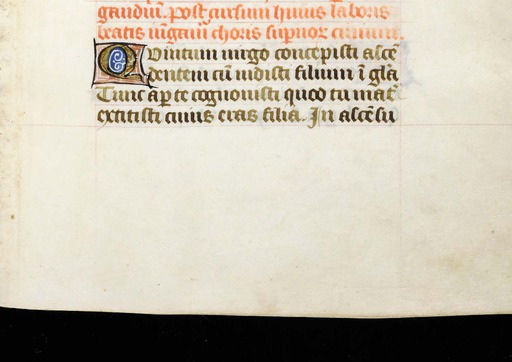 gaudiū. post cursum huius laboris
beatis iūgam̄ choris supnor ciuium.
Quintum uirgo concepisti ascē
dentem cū uidisti filium ī gl̄a
Tunc apte cognouisti quod tu mat̄
extitisti cuius eras filia. In ascēsu